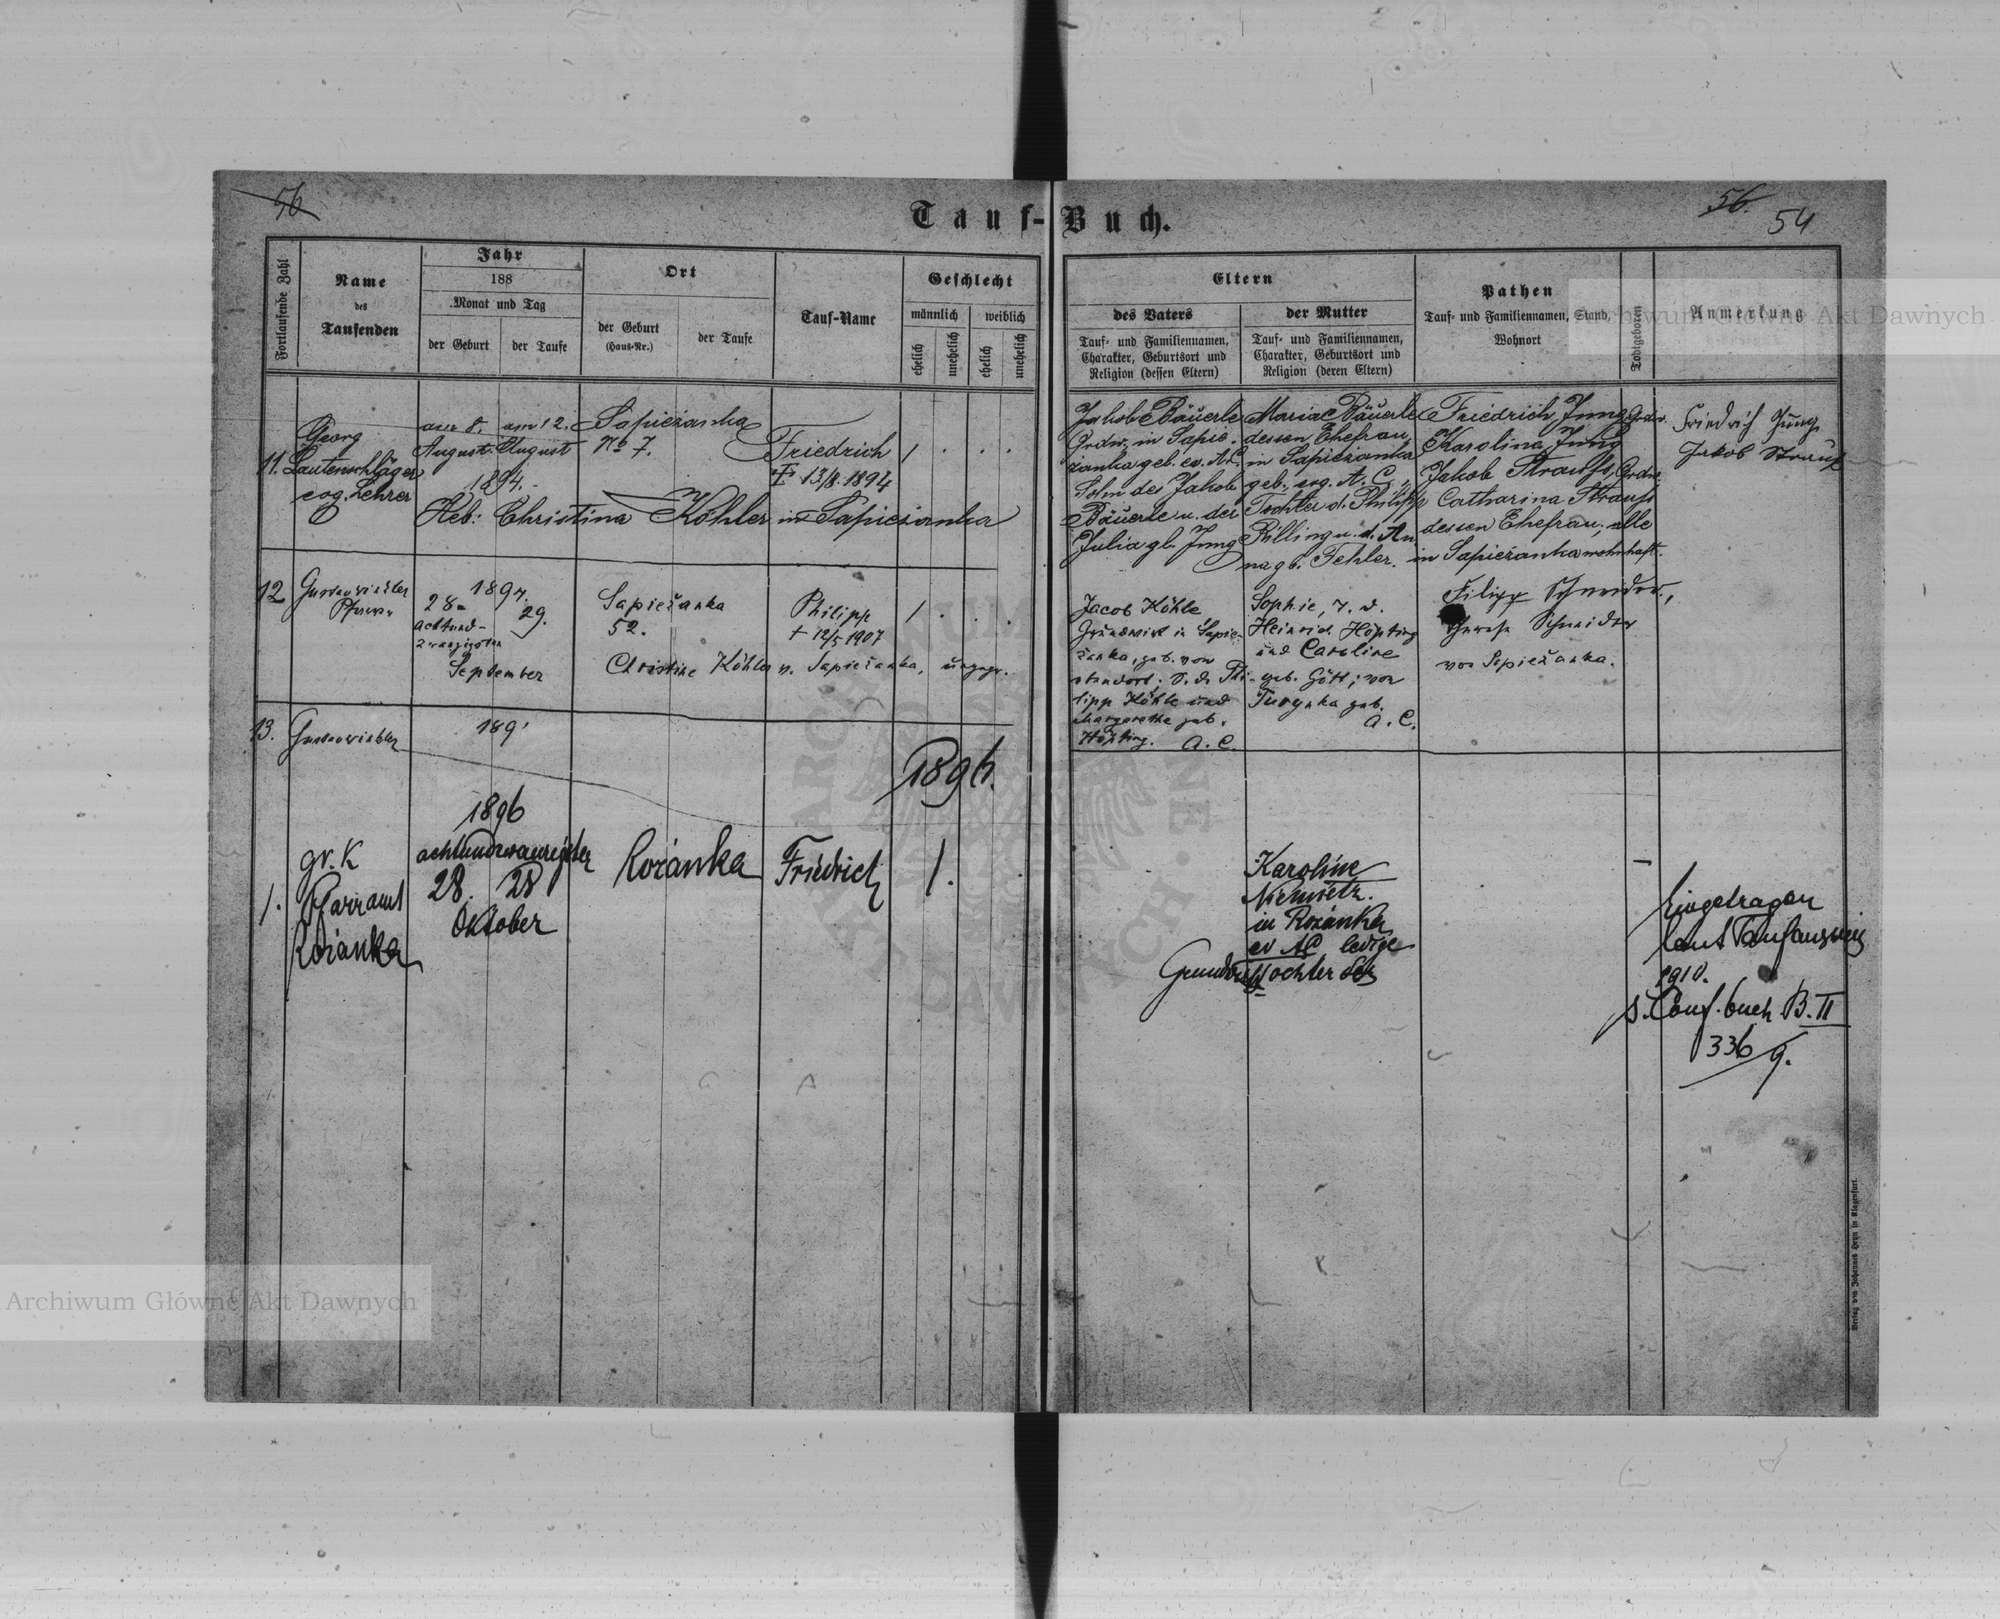 56
56.
54
Tauf-Buch.
Fortlaufende Zahl
Name
des
Taufenden
Jahr
188
Monat und Tag
der Geburt
der Taufe
Ort
der Geburt
(Haus-Nr.)
der Taufe
Tauf-Name
Geschlecht
männlich
weiblich
ehelich
unehelich
ehelich
unehelich
Eltern
des Vaters
Tauf- und Familiennamen,
Charakter, Geburtsort und
Religion (dessen Eltern)
der Mutter
Tauf- und Familiennamen,
Charakter, Geburtsort und
Religion (deren Eltern)
Pathen
Tauf- und Familiennamen, Stand,
Wohnort
Todtgeboren
Anmerkung
11.
Georg
Lautenschläger
evg. Lehrer
am 8.
August
am 12.
August
1894.
Sapieżanka
No 7.
Friedrich
† 13/8. 1894
1 . . .
Heb: Christina Köhler in Sapieżanka
Jakob Bäuerle
Grdw. in Sapie-
żanka geb. ev. A.C.
Sohn des Jakob
Bäuerle u. der
Julia gb. Jung
Maria Bäuerle
dessen Ehefrau,
in Sapieżanka
geb., evg. A. C.,
Tochter d. Philipp
Rilling u. d. An
na gb. Fehler.
Friedrich Jung Grdw.
Karolina Jung
Jakob Strauss, Grdw.
Catharina Strauss
dessen Ehefrau, alle
in Sapieżanka wohnhaft.
Friedrich Jung
Jakob Strauß
12
Pfarrer
1894.
28.
29.
achtund-
zwanzigsten
September
Sapieżanka
52.
Philipp
† 12/5 1907
1 . . .
Christine Köhler v. Sapieżanka, ungepr.
Jacob Köhle
Grundwirt in Sapie-
żanka, geb. von
ebendort. S. d. Phi-
lipp Köhle und
Margarethe geb.
Höpting. A. C.
Sophie, T. d.
Heinrich Höpting
und Caroline
geb. Gött; von
Turynka geb.
A. C.
Filipp Schneider,
Schneider
von Sapieżanka.
13.
189
1896.
1.
gr. K
Pfarramt
Rożanka
1896
achtundzwanzigster
28. 28
Oktober
Rożanka
Friedrich
1.
Karoline
Niemietz.
in Rożanka
ev AC ledige
Grundwirtstochter des
Eingetragen
laut Taufausweis
1910.
s. Conf. buch B. II
336/9.
Verlag von Johannes Heyn in Klagenfurt.
Archiwum Główne Akt Dawnych
Archiwum Główne Akt Dawnych
ARCHIWUM GŁÓWNE AKT DAWNYCH